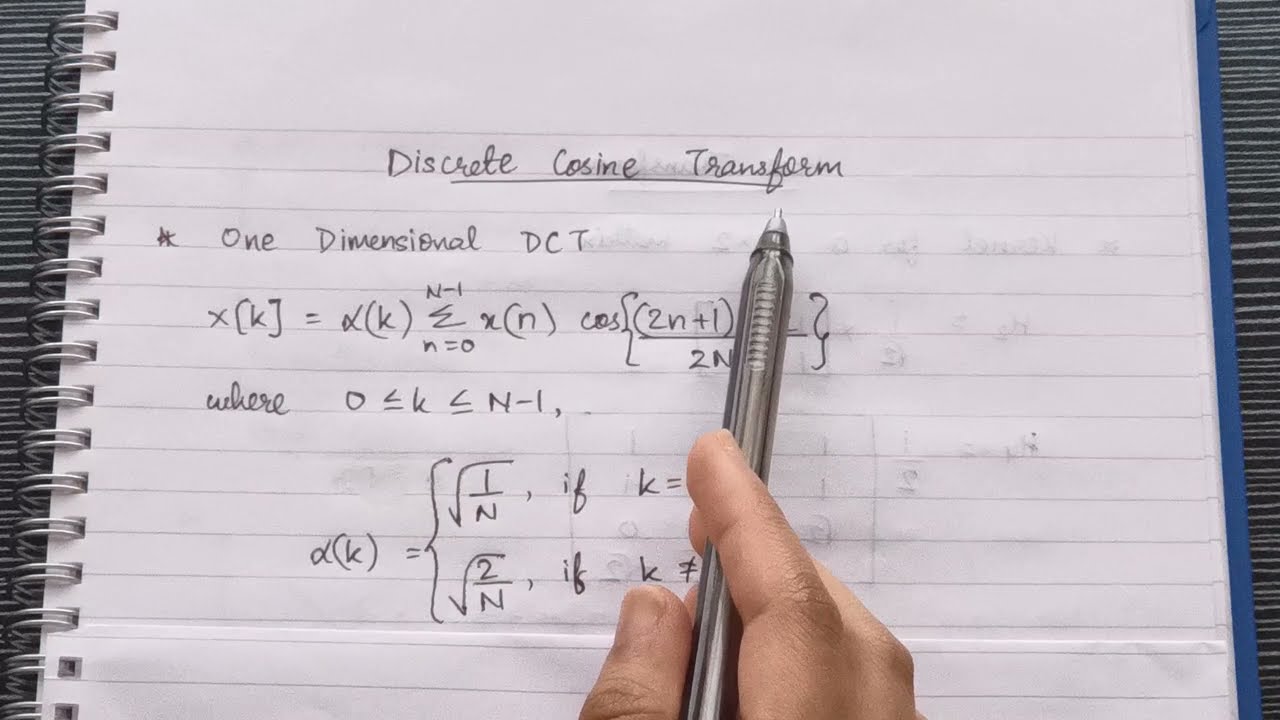 Discrete Cosine Transform
* One Dimensional DCT
x[k] = α(k) N-1 Σ n=0 x(n) cos{(2n+1) / 2N }
where 0 ≤ k ≤ N-1,
α(k) = { √(1/N), if k =
√(2/N), if k ≠